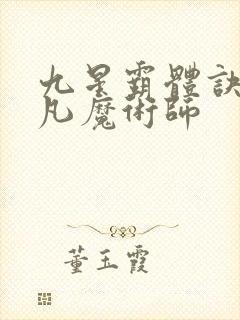 九星霸體訣
凡魔術師
董玉霞